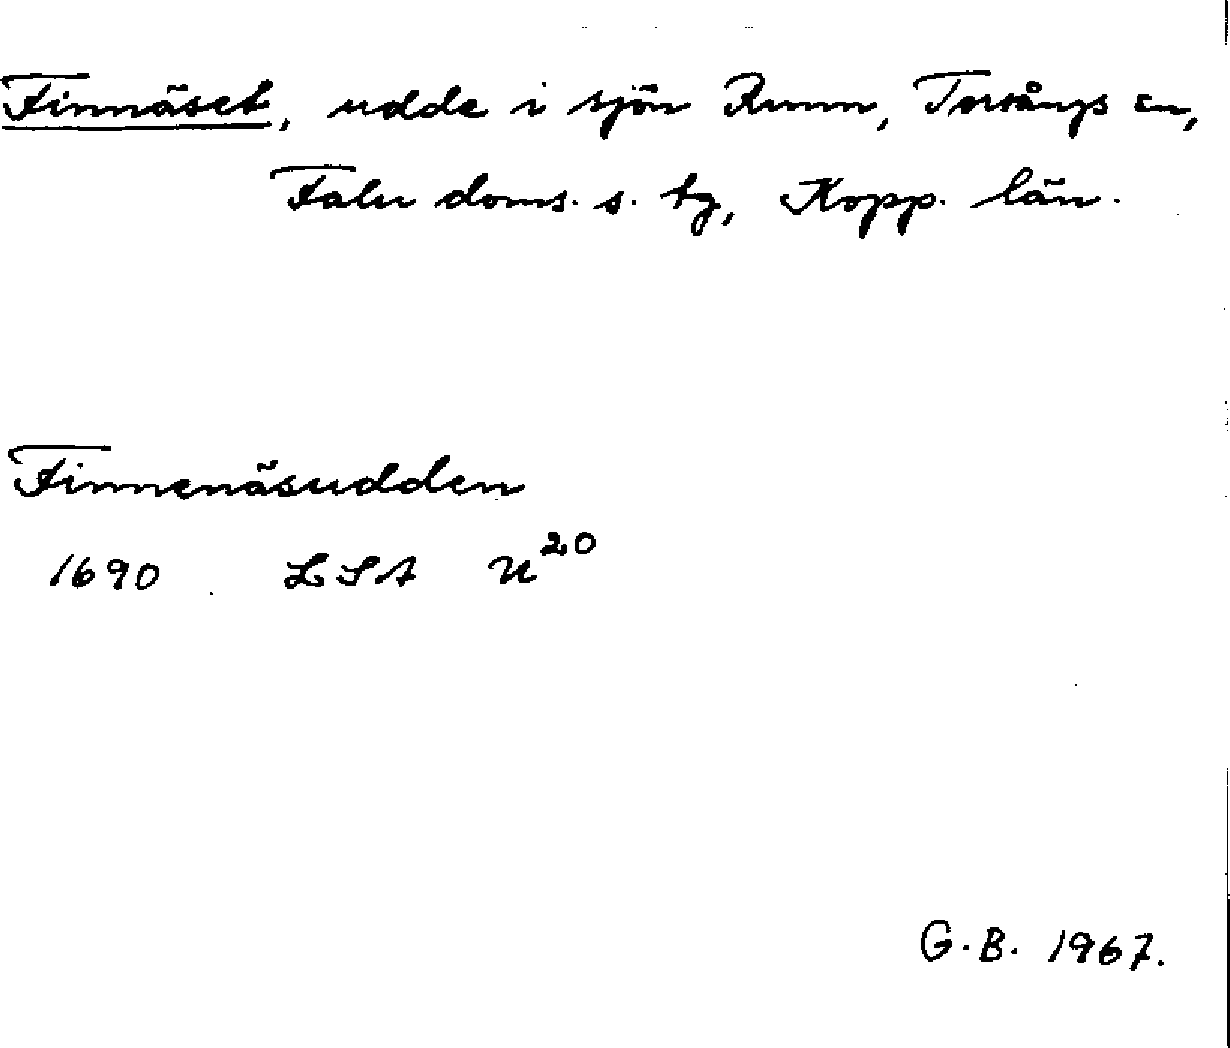 Finnäset, udde i sjön Runn, Torsångs sn,
Falu doms. s. tg, Kopp. län.
Finnenäsudden
1690 LSA U20
G.B. 1967.